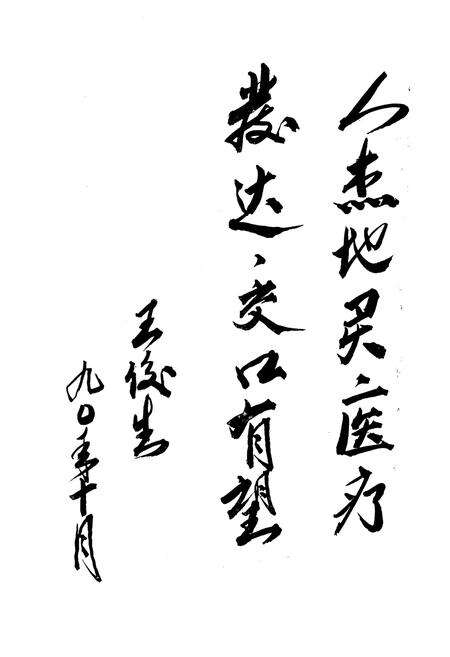 人杰地灵、医疗
發达、交口有望
王俊生
九〇年十月